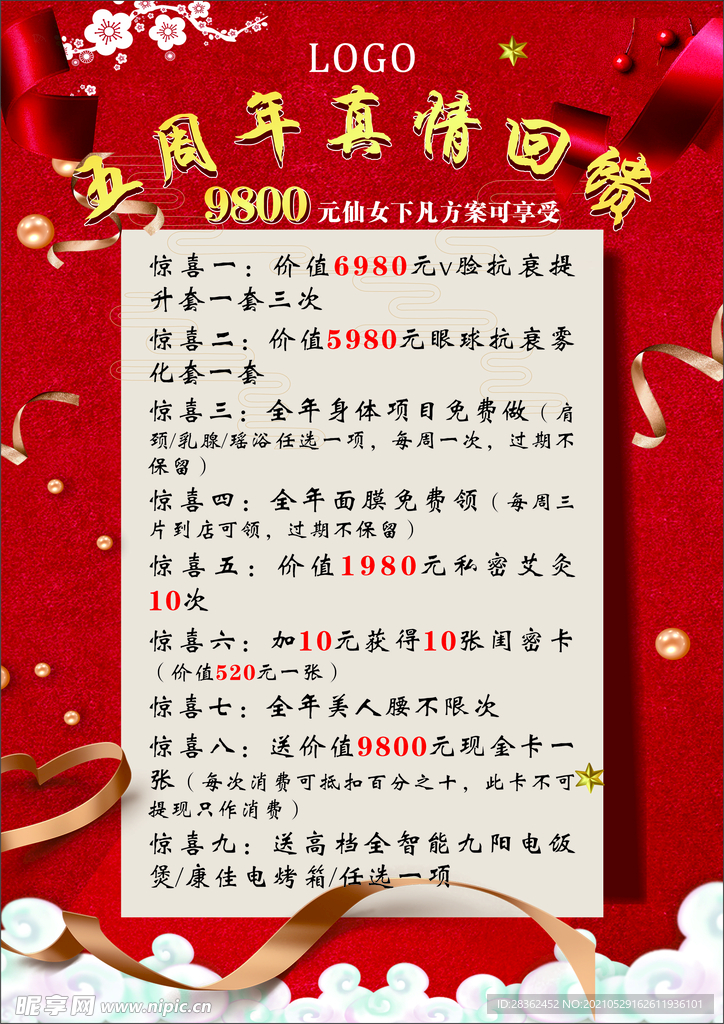 LOGO
五周年真情回馈
9800元仙女下凡方案可享受
惊喜一：价值6980元v脸抗衰提
升套一套三次
惊喜二：价值5980元眼球抗衰雾
化套一套
惊喜三：全年身体项目免费做（肩
颈/乳腺/瑶浴任选一项，每周一次，过期不
保留）
惊喜四：全年面膜免费领（每周三
片到店可领，过期不保留）
惊喜五：价值1980元私密艾灸
10次
惊喜六：加10元获得10张闺密卡
（价值520元一张）
惊喜七：全年美人腰不限次
惊喜八：送价值9800元现金卡一
张（每次消费可抵扣百分之十，此卡不可
提现只作消费）
惊喜九：送高档全智能九阳电饭
煲/康佳电烤箱/任选一项
昵享网 www.nipic.cn
ID:28362452 NO:20210529162611936101